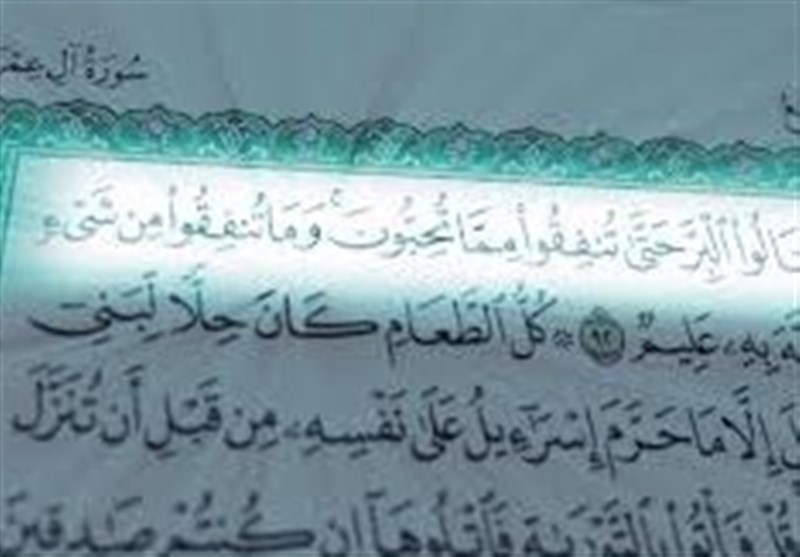 سُورَةُ آلِ عِمْرَ
نَالُوا۟ ٱلْبِرَّ حَتَّىٰ تُنفِقُوا۟ مِمَّا تُحِبُّونَ ۚ وَمَا تُنفِقُوا۟ مِن شَىْءٍ
بِهِۦ عَلِيمٌ ﴿٩٢﴾ ۞ كُلُّ ٱلطَّعَامِ كَانَ حِلًّا لِّبَنِىٓ
إِلَّا مَا حَرَّمَ إِسْرَٰٓءِيلُ عَلَىٰ نَفْسِهِۦ مِن قَبْلِ أَن تُنَزَّلَ
فَأْتُوا۟ بِٱلتَّوْرَىٰةِ فَٱتْلُوهَآ إِن كُنتُمْ صَٰدِقِينَ